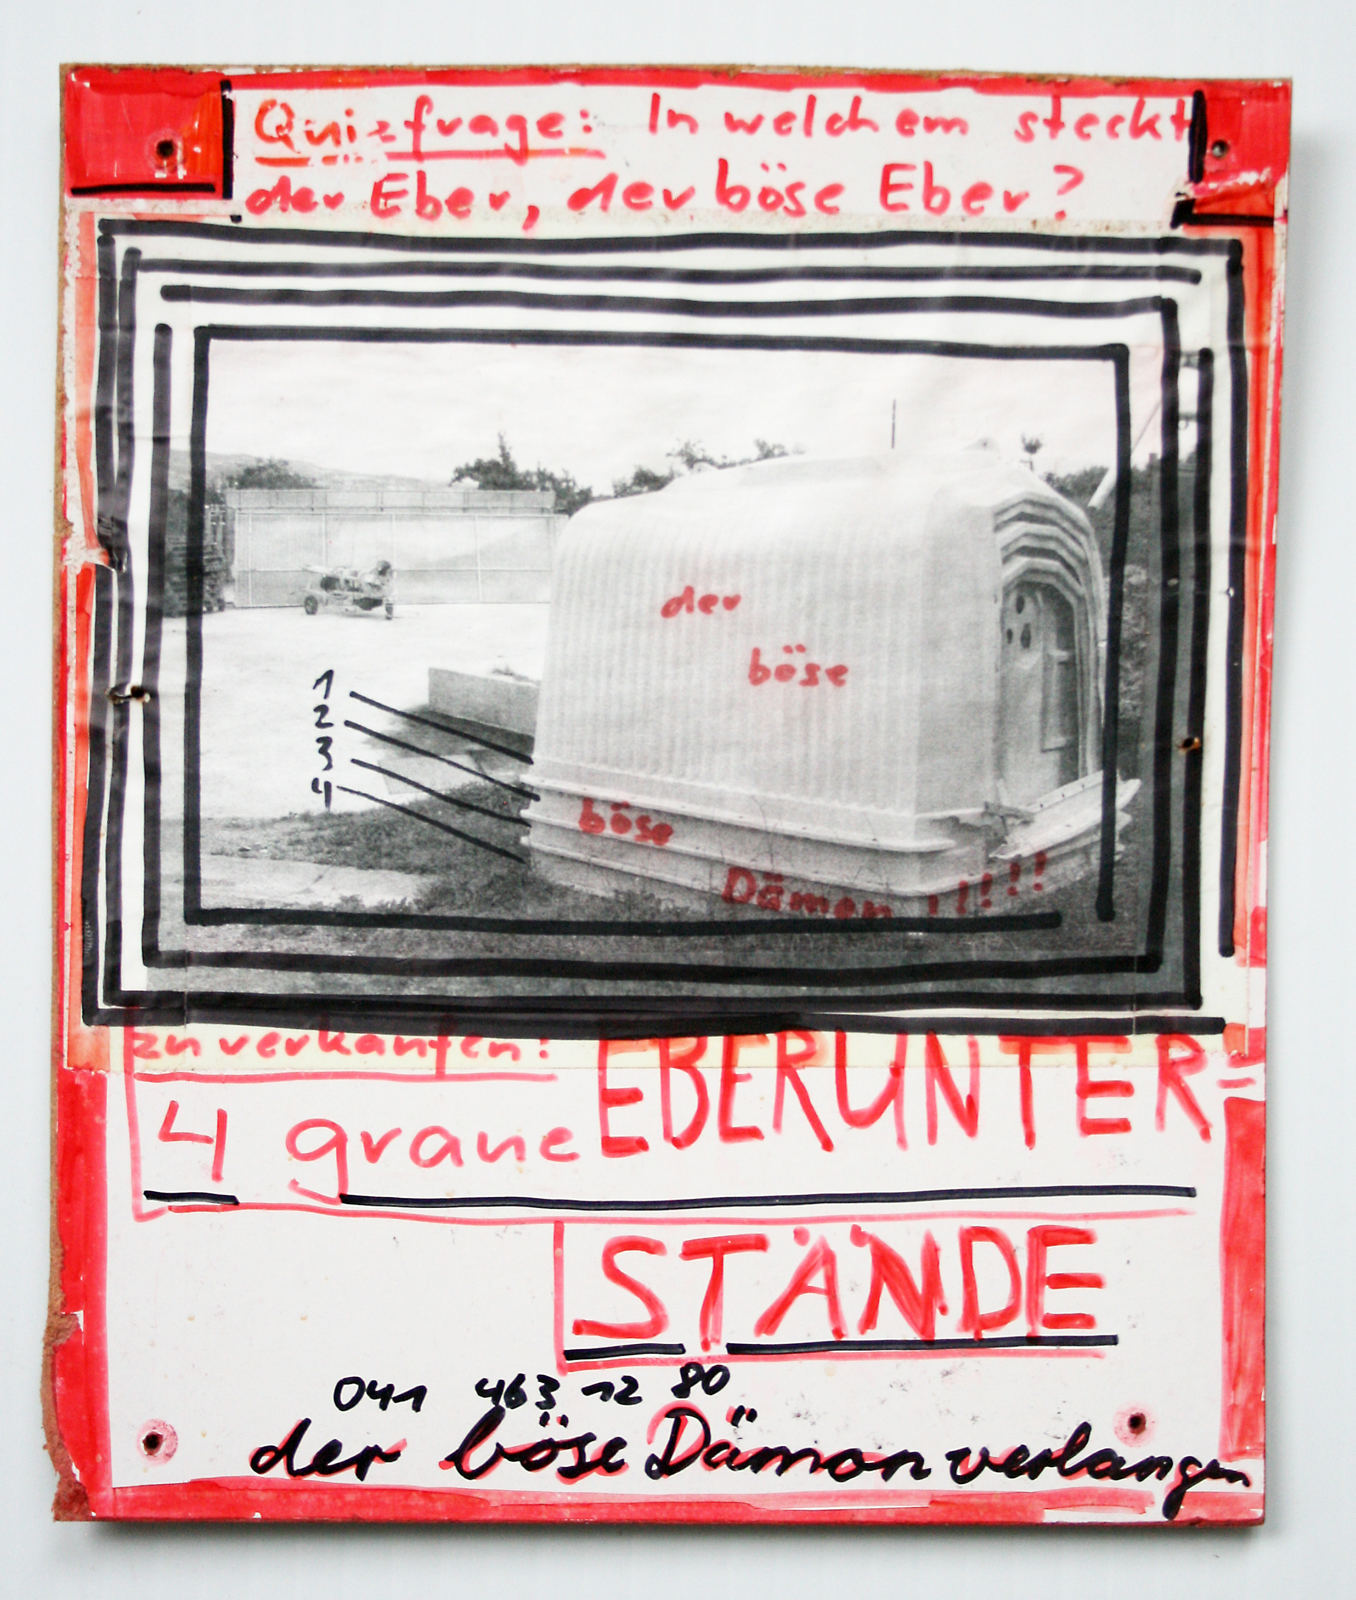 Quizfrage: In welchem steckt
der Eber, der böse Eber?
der
böse
1
2
3
4
böse
Dämon !!!!
zu verkaufen:
4 graue EBERUNTER=
STÄNDE
041 463 12 80
der böse Dämon verlangen